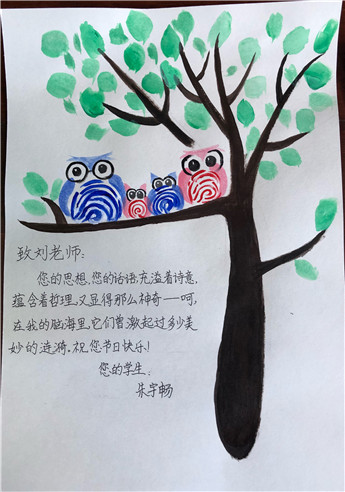 致刘老师:
您的思想,您的话语,充溢着诗意,
蕴含着哲理,又显得那么神奇——呵,
在我的脑海里,它们曾激起过多少美
妙的涟漪.祝您节日快乐!
您的学生:
朱宇畅